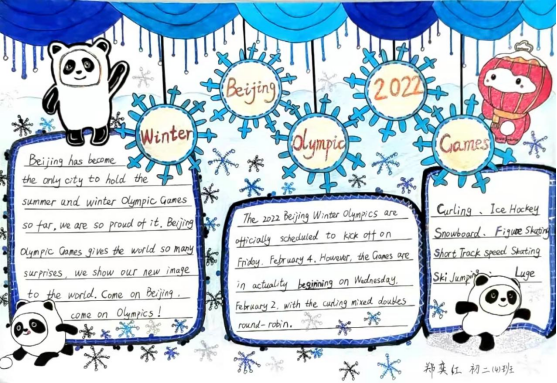 Beijing
2022
Winter
Olympic
Games
Beijing has become
the only city to hold the
summer and winter Olympic Games
so far, we are so proud of it. Beijing
Olympic Games gives the world so many
surprises, we show our new image
to the world. Come on Beijing,
come on Olympics!
The 2022 Beijing Winter Olympics are
officially scheduled to kick off on
Friday, February 4. However, the Games are
in actuality beginning on Wednesday,
February 2, with the curling mixed doubles
round-robin.
Curling、Ice Hockey
Snowboard、Figure Skating
Short Track speed Skating
Ski Jumping、Luge
郑奕红 初二(4)班